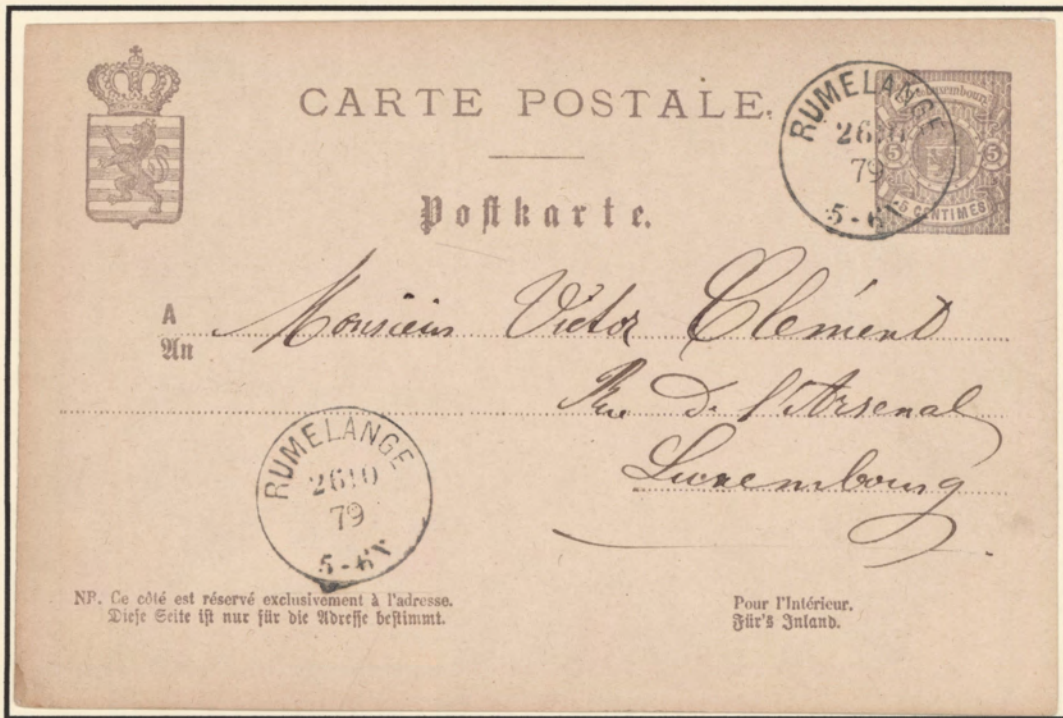 CARTE POSTALE.
Postkarte.
RUMELANGE
2610
79
5-6
Luxembourg
5 5
5 CENTIMES
A Monsieur Victor Clément
An
Rue de l'Arsenal
Luxembourg
RUMELANGE
2610
79
5-6
NB. Ce côté est réservé exclusivement à l'adresse.
Diese Seite ist nur für die Adresse bestimmt.
Pour l'Intérieur.
Für's Inland.